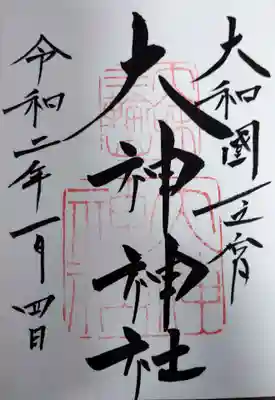 大和國一之宮
大神神社
令和二年一月四日